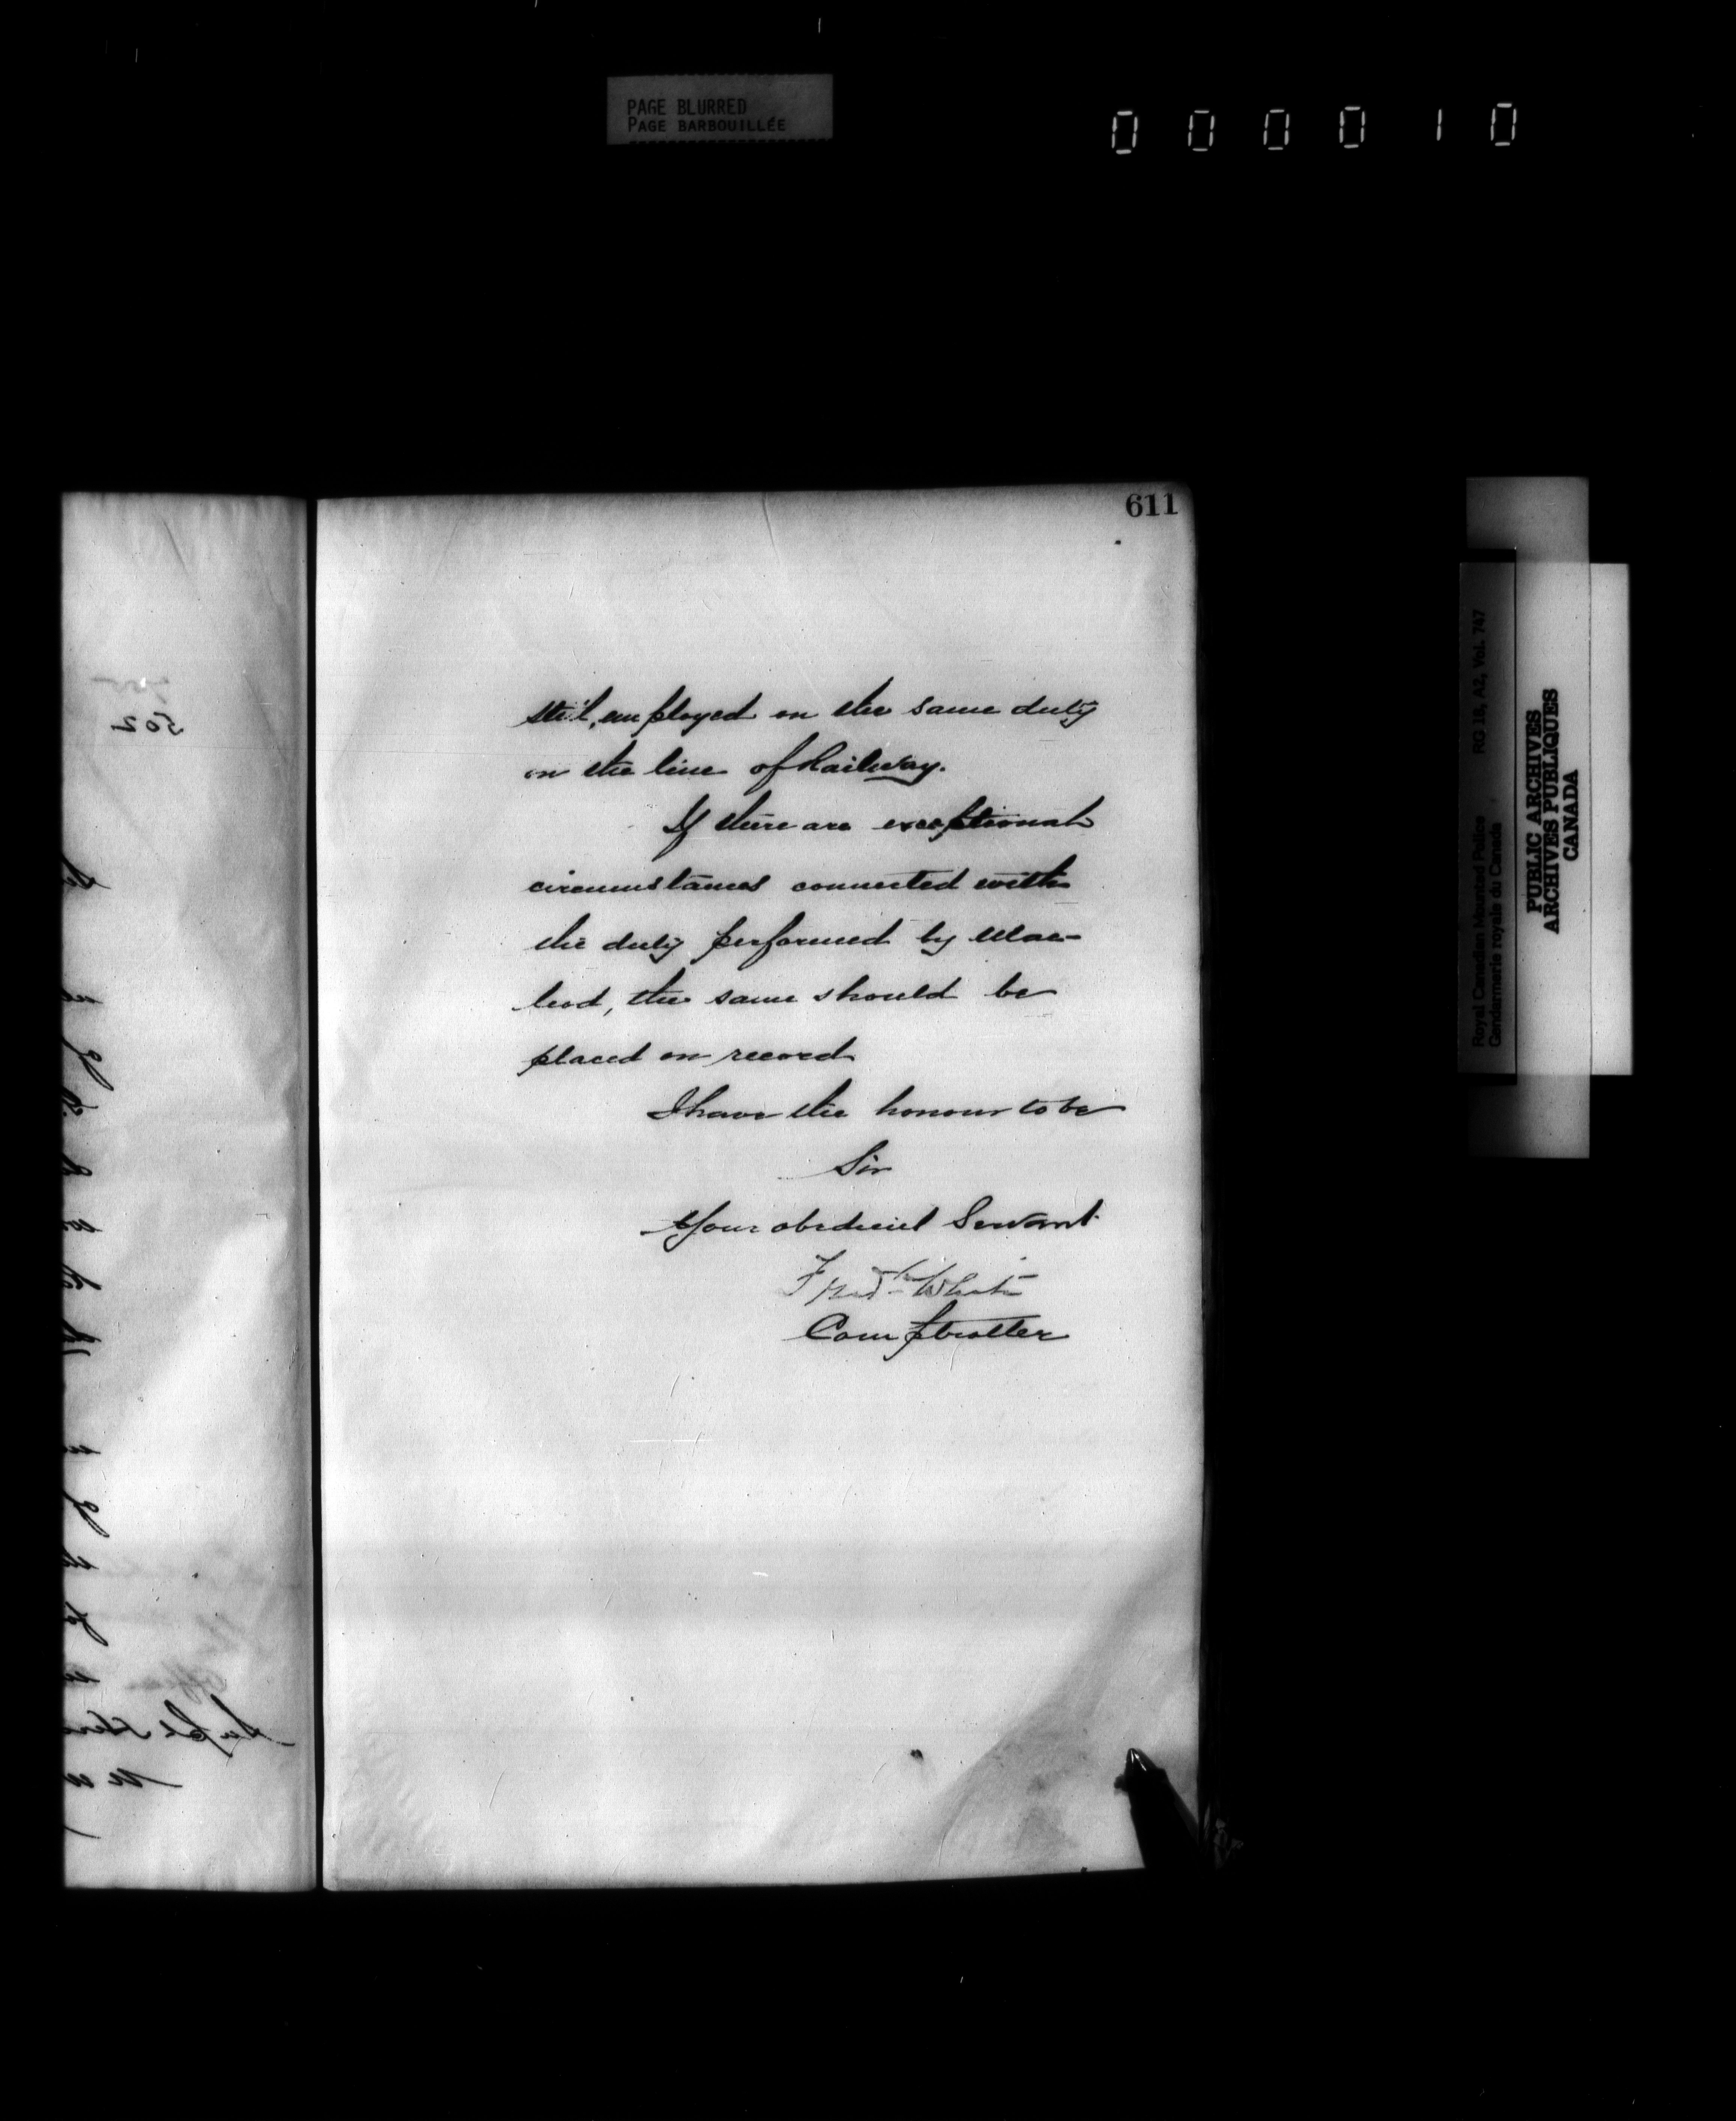 PAGE BLURRED
PAGE BARBOUILLÉE
0 0 0 0 1 0
611
502
still, employed on the same duty
on the line of Railway.
If there are exceptional
circumstances connected with
the duty performed by Mac-
leod, the same should be
placed on record
I have the honour to be
Sir
Your obedient Servant
Fred White
Comptroller
Royal Canadian Mounted Police RG 18, A2, Vol. 747
Gendarmerie royale du Canada
PUBLIC ARCHIVES
ARCHIVES PUBLIQUES
CANADA